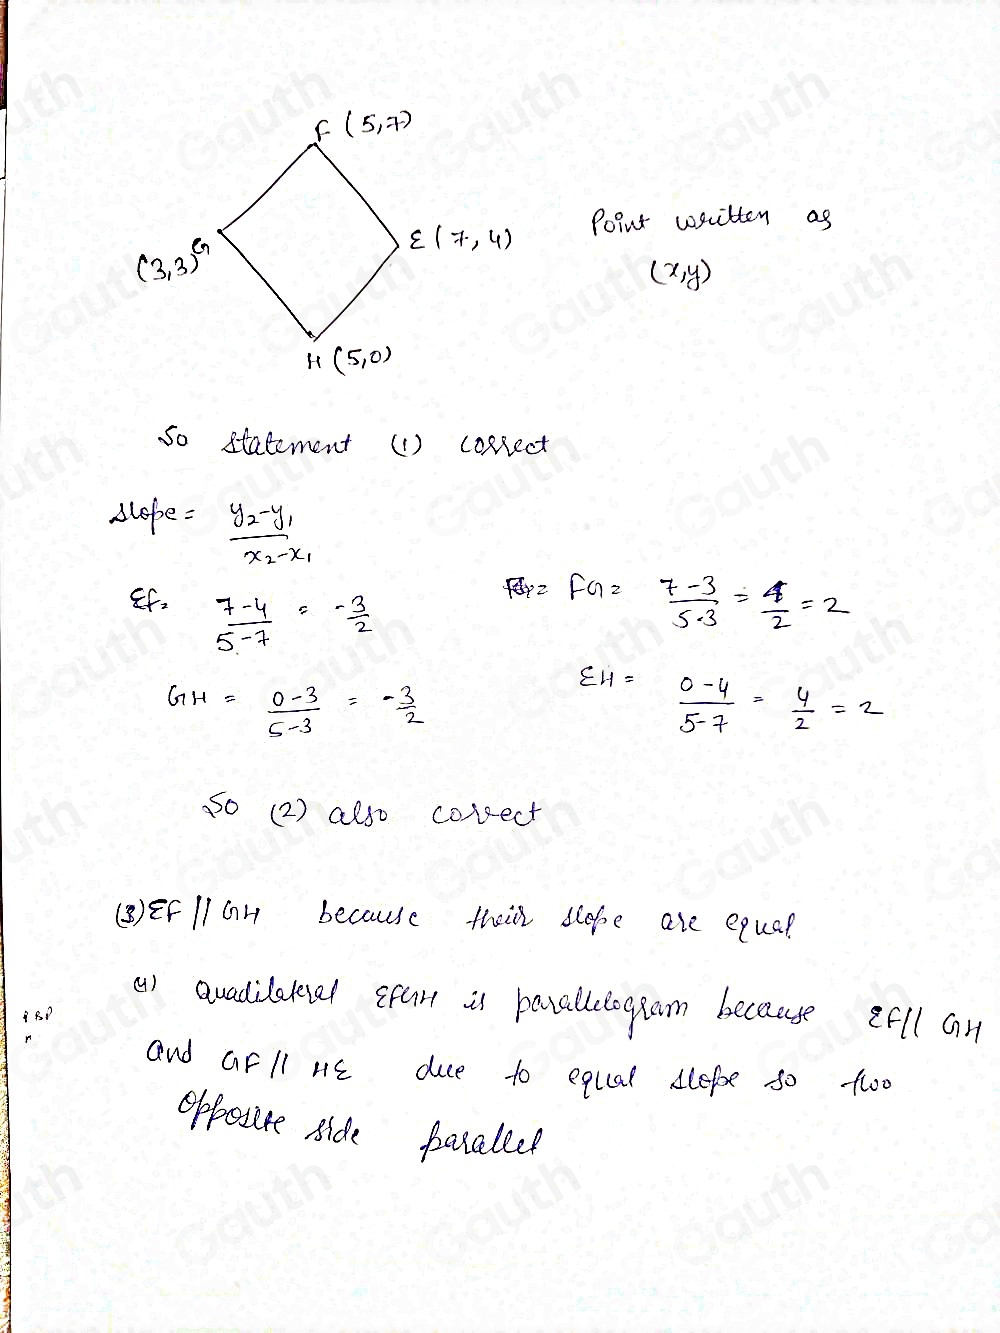 F (5,7)
E (7, 4)
Point written as
(x,y)
(3,3) G
H (5,0)
So statement (1) correct
Slope = y₂-y₁ / x₂-x₁
EF = 7-4 / 5-7 = -3/2
FG = 7-3 / 5-3 = 4/2 = 2
GH = 0-3 / 5-3 = -3/2
EH = 0-4 / 5-7 = 4/2 = 2
So (2) also correct
(3) EF || GH because their slope are equal
(4) Quadilateral EFGH is parallelogram because EF || GH
and GF || HE due to equal slope so two
opposite side parallel
Gauth